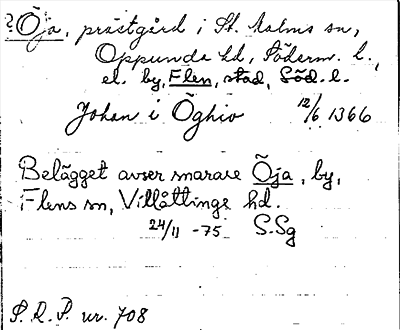 ? Öja, prästgård i St. Malms sn,
Oppunda hd, Söderm. l.,
el. by, Flen, stad, Söd. l.
Johan i Öghio 12/6 1366
Belägget avser snarare Öja, by,
Flens sn, Villåttinge hd.
24/11 -75 S.Sg
P.R.P. nr. 708